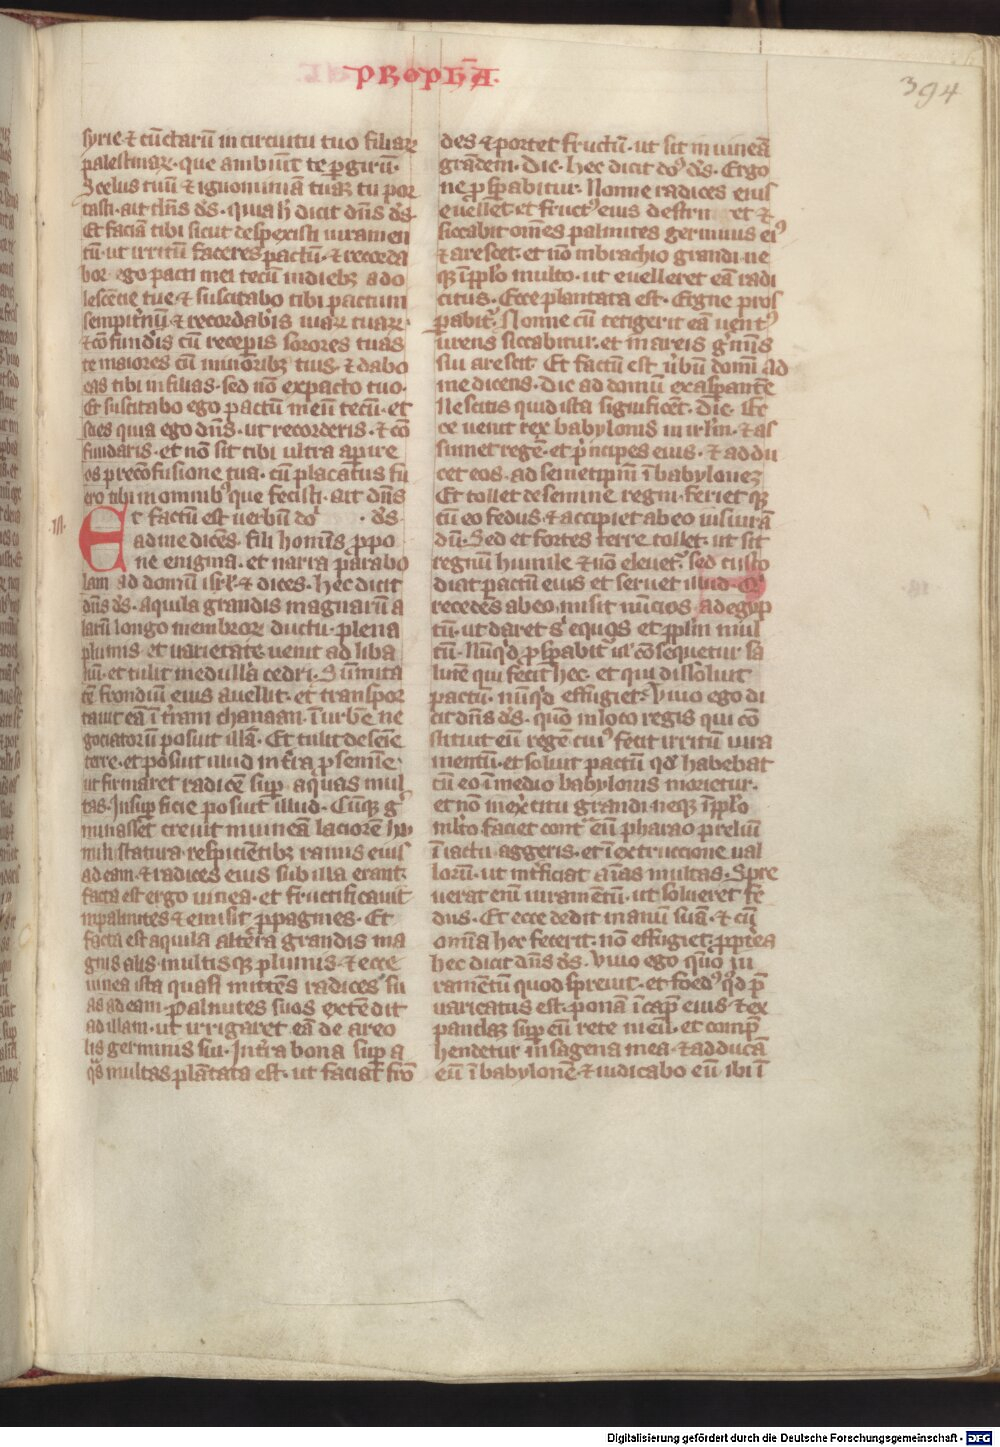 PROPHA.
394
syrie ⁊ cūctarū in circuitu tuo filiaꝝ
palestinaꝝ· que ambiūt te ꝑ girū·
Scelus tuū ⁊ ignominiā tuaꝫ tu por
tasti· ait dn̄s ds̄· quia h̄ dicit dn̄s ds̄·
Et faciā tibi sicut despexisti iuramen
tū· ut irritū faceres pactū· ⁊ recorda
bor ego pacti mei tecū in diebꝫ ado
lescētie tue ⁊ suscitabo tibi pactum
sempit̄nū· ⁊ recordab̄is uiaꝝ tuaꝝ·
⁊ cōfundēis cū recep̄is sorores tuas
te maiores cū minoribꝫ tuis· ⁊ dabo
eas tibi in filias· sed nō ex pacto tuo·
Et suscitabo ego pactū meū tecū· et
scies quia ego dn̄s· ut recorderis· ⁊ cō
fundaris· et nō sit tibi ultra aꝑire
os pre cōfusione tua· cū placatus fu
ero tibi in omnibꝰ que fecisti· ait dn̄s
Et factū est uerbū do ds̄·
ad me dicēs· fili hominis ꝓpo
ne enigma· et narra parabo
lam ad domū isrl̄· ⁊ dices· hec dicit
dn̄s ds̄· aquila grandis magnarū a
larū longo membroꝝ ductu· plena
plumis et uarietate uenit ad liba
nū· et tulit medullā cedri· Sūmita
tē frondiū eius auellit· et transpor
tauit eā ī t̄ram chanaan· ī urbe ne
gociatorū posuit illā· Et tulit de sēie
terre· et posuit illud in t̄ra ꝓ semīe·
ut firmaret radicē suꝑ aquas mul
tas· In suꝑficie posuit illud· Cūqꝫ ḡ
minasset creuit in uineā laciorē hu
mili statura respicientibꝫ ramis eius
ad eam· ⁊ radices eius sub illa erant·
facta est ergo uinea· et fructificauit
in palmites ⁊ emisit ꝓpagines· Et
facta est aquila alt̄era grandis ma
gnis alis· multisqꝫ plumis· ⁊ ecce
uinea ista quasi mittēs radices su
as ad eam· palmites suos extēdit
ad illam· ut irrigaret eā de areo
lis germinis sui· In t̄ra bona suꝑ a
qͣs multas plātata est· ut faciat frō
des ⁊ portet fructū· ut sit in uineā
grādem· Dic· hec dicit dn̄s ds̄· Ergo
ne ꝓsꝑabitur· Nonne radices eius
euellet· et fructꝰ eius destrin et ⁊
siccabit om̄es palmites germinis eiꝰ
⁊ arescet· et nō in brachio grandi ne
qꝫ ī ppl̄o multo· ut euelleret eā radi
citus· Ecce plantata est· Ergne pros
ꝑabit᷑· Nonne cū tetigerit eā uentꝰ
urens siccabitur· et in areis ḡmīs
sui arescit· Et factū est ūbū domī ad
me dicens· Dic ad domū exasꝑantē
Nescitis quid ista significēt· Dic· Ec
ce uenit rex babylonis in irlm̄· ⁊ as
sumet regē· et p̄ncipes eius· ⁊ addu
cet eos· ad semetipm̄ ī babylonē
Et tollet de semine regni· feriet qꝫ
cū eo fedus· ⁊ accipiet ab eo iusiurā
dū· Sed et fortes terre tollet· ut sit
regnū humile ⁊ nō eleuet᷑· sed custo
diat pactū eius et seruet illud· Qͥ
recedēs ab eo misit nūcios ad egyp
tū· ut daret sͥ equos et ppl̄m mul
tū· Nūqͥd ꝓsꝑabit᷑ ul̄ cōsequetur sa
lutē qui fecit hec· et qui dissoluit
pactū· nūqͥd effugiet· Viuo ego di
cit dn̄s ds̄· qūo in loco regis qui cō
stituit eū regē cuiꝰ fecit irritū iura
mentū· et soluit pactū qd̄ habebat
cū eo ī medio babylonis morietur·
et nō in ex̄citu grandi· neqꝫ ī ppl̄o
ml̄to faciet cont̄ eū pharao preliū
ī iactu aggeris· et ī extruccione ual
lorū· ut int̄ficiat aīas multas· Spre
uerat eni iuramētū· ut solueret fe
dus· Et ecce dedit manū suā· ⁊ cū
omīa hec fecerit· nō effugiet· ꝓpt̄ea
hec dicit dn̄s ds̄· Viuo ego qūo iu
ramētū quod spreuit· et foedꝰ qd̄ p̄
uaricatus est· ponā ī cap̄ eius· ⁊ ex
pandaꝫ suꝑ eū rete meū· et comp̄
hendetur in sagena mea· ⁊ adducā
eū ī babylonē· ⁊ iudicabo eū ibi ī
Digitalisierung gefördert durch die Deutsche Forschungsgemeinschaft - DFG